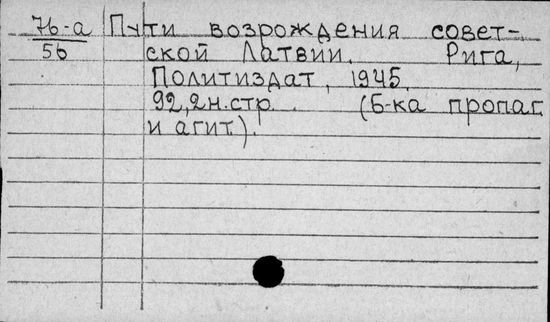 76-а Пути возрождения совет-
56 ской Латвии. Рига,
Политиздат, 1945.
92,2н.стр. (Б-ка пропаг.
и агит.).